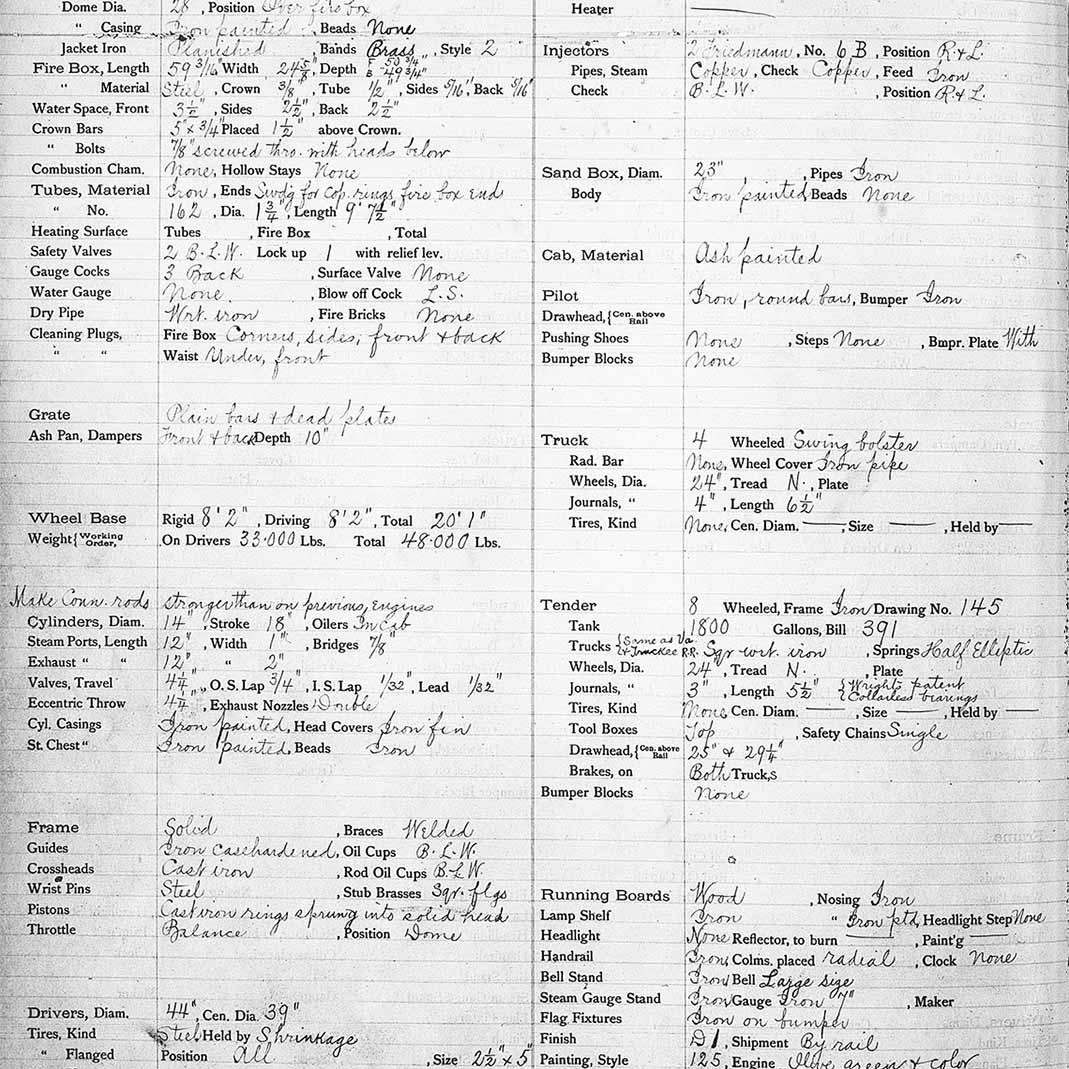 Dome Dia. 28", Position Over fire box
" Casing Iron painted, Beads None
Jacket Iron Planished, Bands Brass, Style 2
Fire Box, Length 59 3/16", Width 24 5/8", Depth F 50 3/4" B 49 3/4"
" Material Steel, Crown 3/8", Tube 1/2", Sides 5/16", Back 5/16"
Water Space, Front 3 1/2", Sides 2 1/2", Back 2 1/2"
Crown Bars 5" x 3/4" Placed 1 1/2" above Crown.
" Bolts 7/8" screwed thro. with heads below
Combustion Cham. None, Hollow Stays None
Tubes, Material Iron, Ends Swdg for cop. rings fire box end
" No. 162, Dia. 1 3/4", Length 9' 7 1/2"
Heating Surface Tubes , Fire Box , Total
Safety Valves 2 B.L.W. Lock up 1 with relief lev.
Gauge Cocks 3 Back , Surface Valve None
Water Gauge None. , Blow off Cock L.S.
Dry Pipe Wrt. iron , Fire Bricks None
Cleaning Plugs, Fire Box Corners, sides, front & back
" " Waist Under, front
Grate Plain bars & dead plates
Ash Pan, Dampers Front & back Depth 10"
Wheel Base Rigid 8' 2", Driving 8' 2", Total 20' 1"
Weight { Working Order, On Drivers 33.000 Lbs. Total 48.000 Lbs.
Make Conn. rods stronger than on previous, Engines
Cylinders, Diam. 14", Stroke 18", Oilers In cab
Steam Ports, Length 12", Width 1", Bridges 7/8"
Exhaust " " 12" " 2"
Valves, Travel 4 1/4", O. S. Lap 3/4", I. S. Lap 1/32", Lead 1/32"
Eccentric Throw 4 1/4", Exhaust Nozzles Double
Cyl. Casings Iron painted, Head Covers Iron fin
St. Chest " Iron painted, Beads Iron
Frame Solid , Braces Welded
Guides Iron casehardened, Oil Cups B.L.W.
Crossheads Cast iron , Rod Oil Cups B.L.W.
Wrist Pins Steel , Stub Brasses Sqr. flgs
Pistons Cast iron rings sprung into solid head
Throttle Balance , Position Dome
Drivers, Diam. 44", Cen. Dia. 39"
Tires, Kind Steel Held by Shrinkage
" Flanged Position All , Size 2 1/2" x 5"
Heater
Injectors 2 Friedmann, No. 6 B, Position R & L
Pipes, Steam Copper, Check Copper, Feed Iron
Check B.L.W. , Position R & L.
Sand Box, Diam. 23" , Pipes Iron
Body Iron painted, Beads None
Cab, Material Ash painted
Pilot Iron, round bars, Bumper Iron
Drawhead, { Cen. above Rail
Pushing Shoes None , Steps None , Bmpr. Plate With
Bumper Blocks None
Truck 4 Wheeled Swing bolster
Rad. Bar None, Wheel Cover Iron pipe
Wheels, Dia. 24", Tread N., Plate
Journals, " 4", Length 6 1/2"
Tires, Kind None, Cen. Diam. —, Size —, Held by —
Tender 8 Wheeled, Frame Iron Drawing No. 145
Tank 1800 Gallons, Bill 391
Trucks { Same as Va. & Truckee R.R. Sqr wrt. iron , Springs Half Elliptic
Wheels, Dia. 24", Tread N. , Plate
Journals, " 3", Length 5 1/2" { Wrights patent Collarless bearings
Tires, Kind None, Cen. Diam. —, Size —, Held by —
Tool Boxes Top , Safety Chains Single
Drawhead, { Cen. above Rail 25" & 29 1/4"
Brakes, on Both Truck,s
Bumper Blocks None
Running Boards Wood , Nosing Iron
Lamp Shelf Iron " Iron ptd, Headlight Step None
Headlight None Reflector, to burn — , Paint'g —
Handrail Iron, Colms. placed radial , Clock None
Bell Stand Iron Bell Large size
Steam Gauge Stand Iron Gauge Iron 7" , Maker
Flag Fixtures Iron on bumper
Finish D1, Shipment By rail
Painting, Style 125, Engine Olive green & color